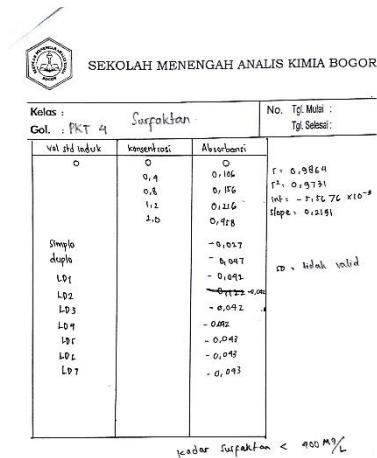 SEKOLAH MENENGAH ANALIS KIMIA BOGOR
Kelas :
Gol. : PKT 4
Surfaktan
No. Tgl. Mulai :
Tgl. Selesai :
Vol std induk konsentrasi Absorbansi
0 0 0
0,4 0,106
0,8 0,156
1,2 0,216
2,0 0,458
r = 0,9864
r² = 0,9731
int = -5,5676 x10⁻³
slope = 0,2151
Simplo -0,027
duplo - 0,047
LD1 - 0,042
LD2 -0,042
LD3 - 0,042
LD4 - 0,042
LD5 - 0,043
LD6 - 0,043
LD7 - 0,043
SD = tidak valid
kadar surfaktan < 400 Mg/L